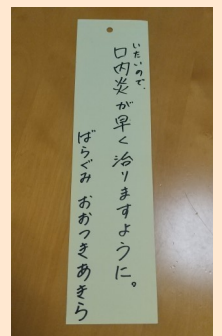 いたいので、
口内炎が早く治りますように。
ばらぐみ おおつきあきら